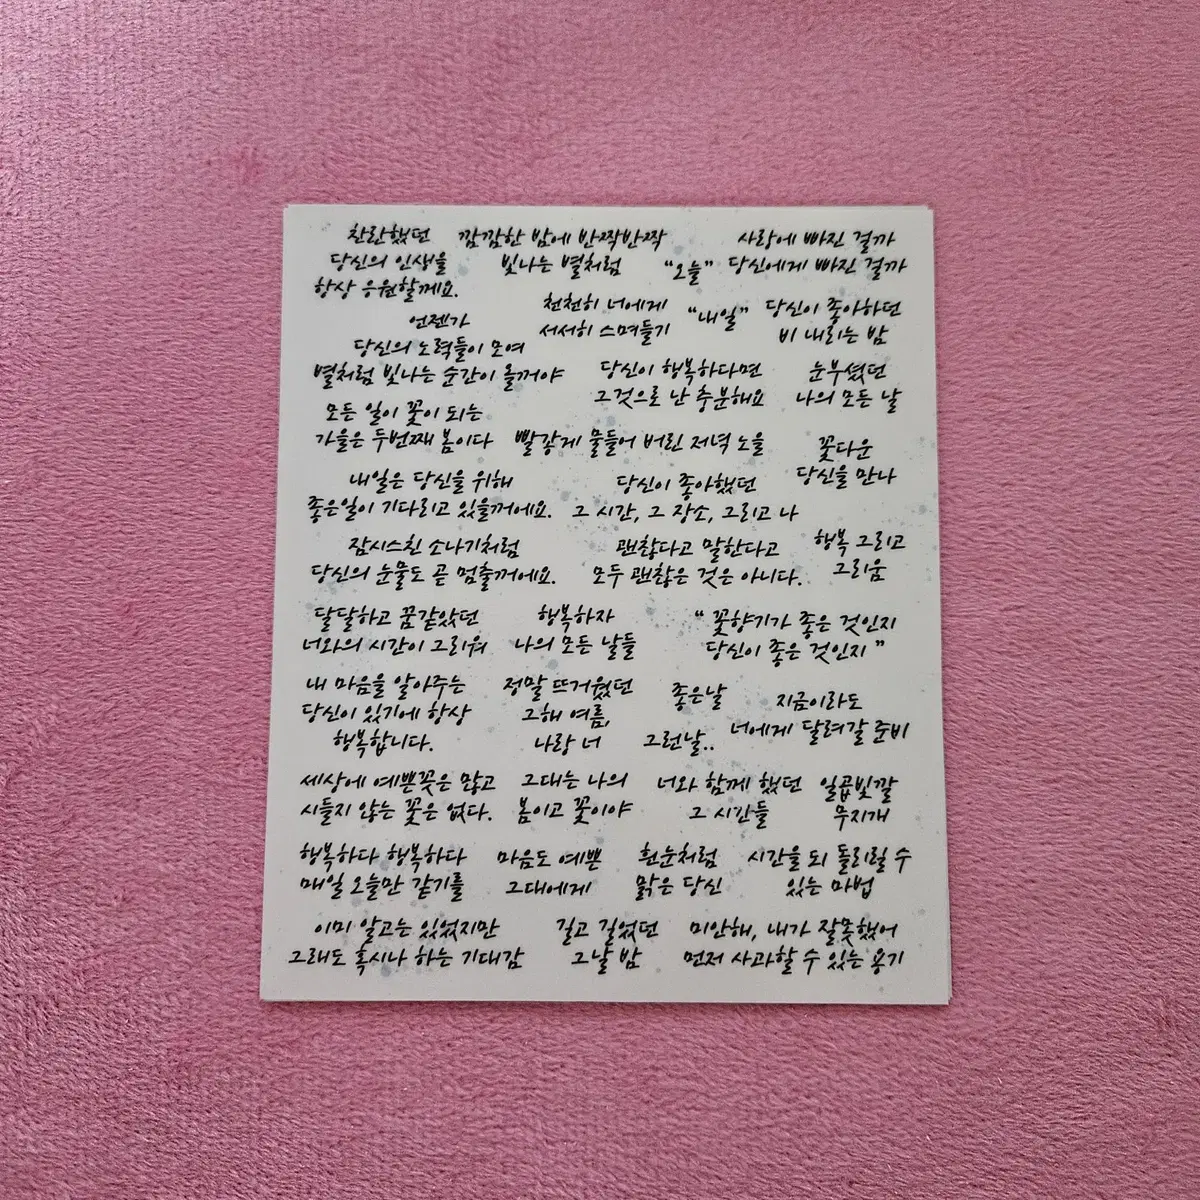 찬란했던
당신의 인생을
항상 응원할께요.
깜깜한 밤에 반짝반짝
빛나는 별처럼
"오늘"
사랑에 빠진 걸까
당신에게 빠진 걸까
언젠가
당신의 노력들이 모여
별처럼 빛나는 순간이 올꺼야
천천히 너에게
서서히 스며들기
"내일"
당신이 좋아하던
비 내리는 밤
당신이 행복하다면
그것으로 난 충분해요
눈부셨던
나의 모든 날
모든 일이 꽃이 되는
가을은 두번째 봄이다
빨갛게 물들어 버린 저녁 노을
꽃다운
당신을 만나
내일은 당신을 위해
좋은일이 기다리고 있을꺼에요.
당신이 좋아했던
그 시간, 그 장소, 그리고 나
잠시스친 소나기처럼
당신의 눈물도 곧 멈출꺼에요.
괜찮다고 말한다고
모두 괜찮은 것은 아니다.
행복 그리고
그리움
달달하고 꿈같았던
너와의 시간이 그리워
행복하자
나의 모든 날들
" 꽃향기가 좋은 것인지
당신이 좋은 것인지 "
내 마음을 알아주는
당신이 있기에 항상
행복합니다.
정말 뜨거웠던
그해 여름,
나랑 너
좋은날
그런날..
지금이라도
너에게 달려갈 준비
세상에 예쁜꽃은 많고
시들지 않는 꽃은 없다.
그대는 나의
봄이고 꽃이야
너와 함께 했던
그 시간들
일곱빛깔
무지개
행복하다 행복하다
매일 오늘만 같기를
마음도 예쁜
그대에게
흰눈처럼
맑은 당신
시간을 되 돌리릴 수
있는 마법
이미 알고는 있었지만
그래도 혹시나 하는 기대감
길고 길었던
그날 밤
미안해, 내가 잘못했어
먼저 사과할 수 있는 용기